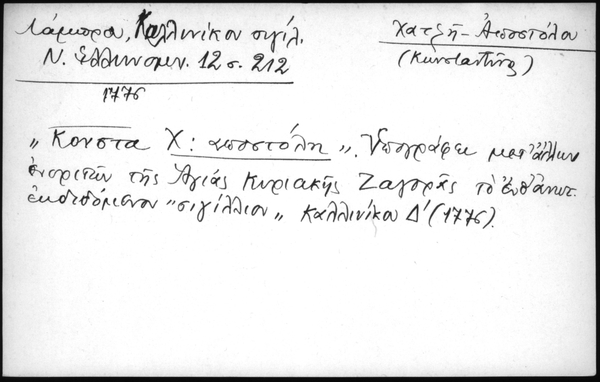 Λάμπρου, Καλλινίκου σιγίλ.
Ν. Ἑλληνομν. 12 σ. 212
1776
Χατζῆ-Ἀποστόλου
(Κωνσταντῖνος)
„Κονστα Χ: αποστόλη". Ὑπογράφει μετ' ἄλλων
ἐνοριτῶν τῆς Ἁγίας Κυριακῆς Ζαγορᾶς τὸ ἐνθ' ἀνωτ.
ἐκδιδόμενον "σιγίλλιον„ Καλλινίκου Δ' (1776).